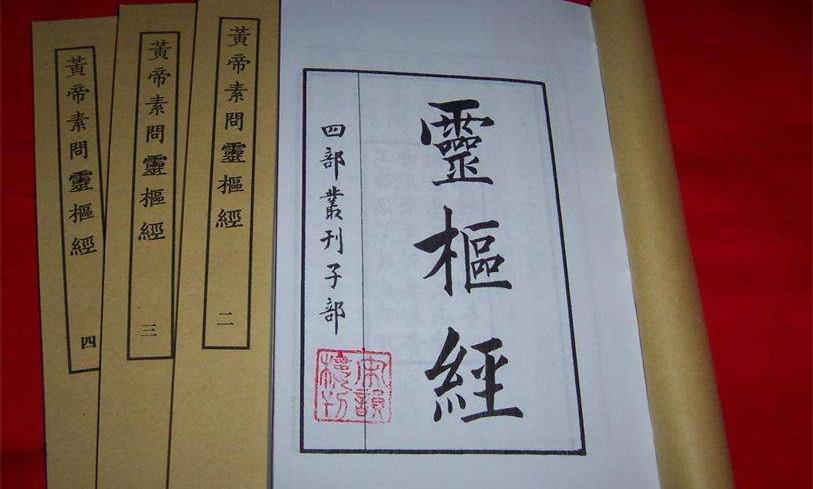 靈樞經
四部叢刊子部
黃帝素問靈樞經 二
黃帝素問靈樞經 三
黃帝素問靈樞經 四